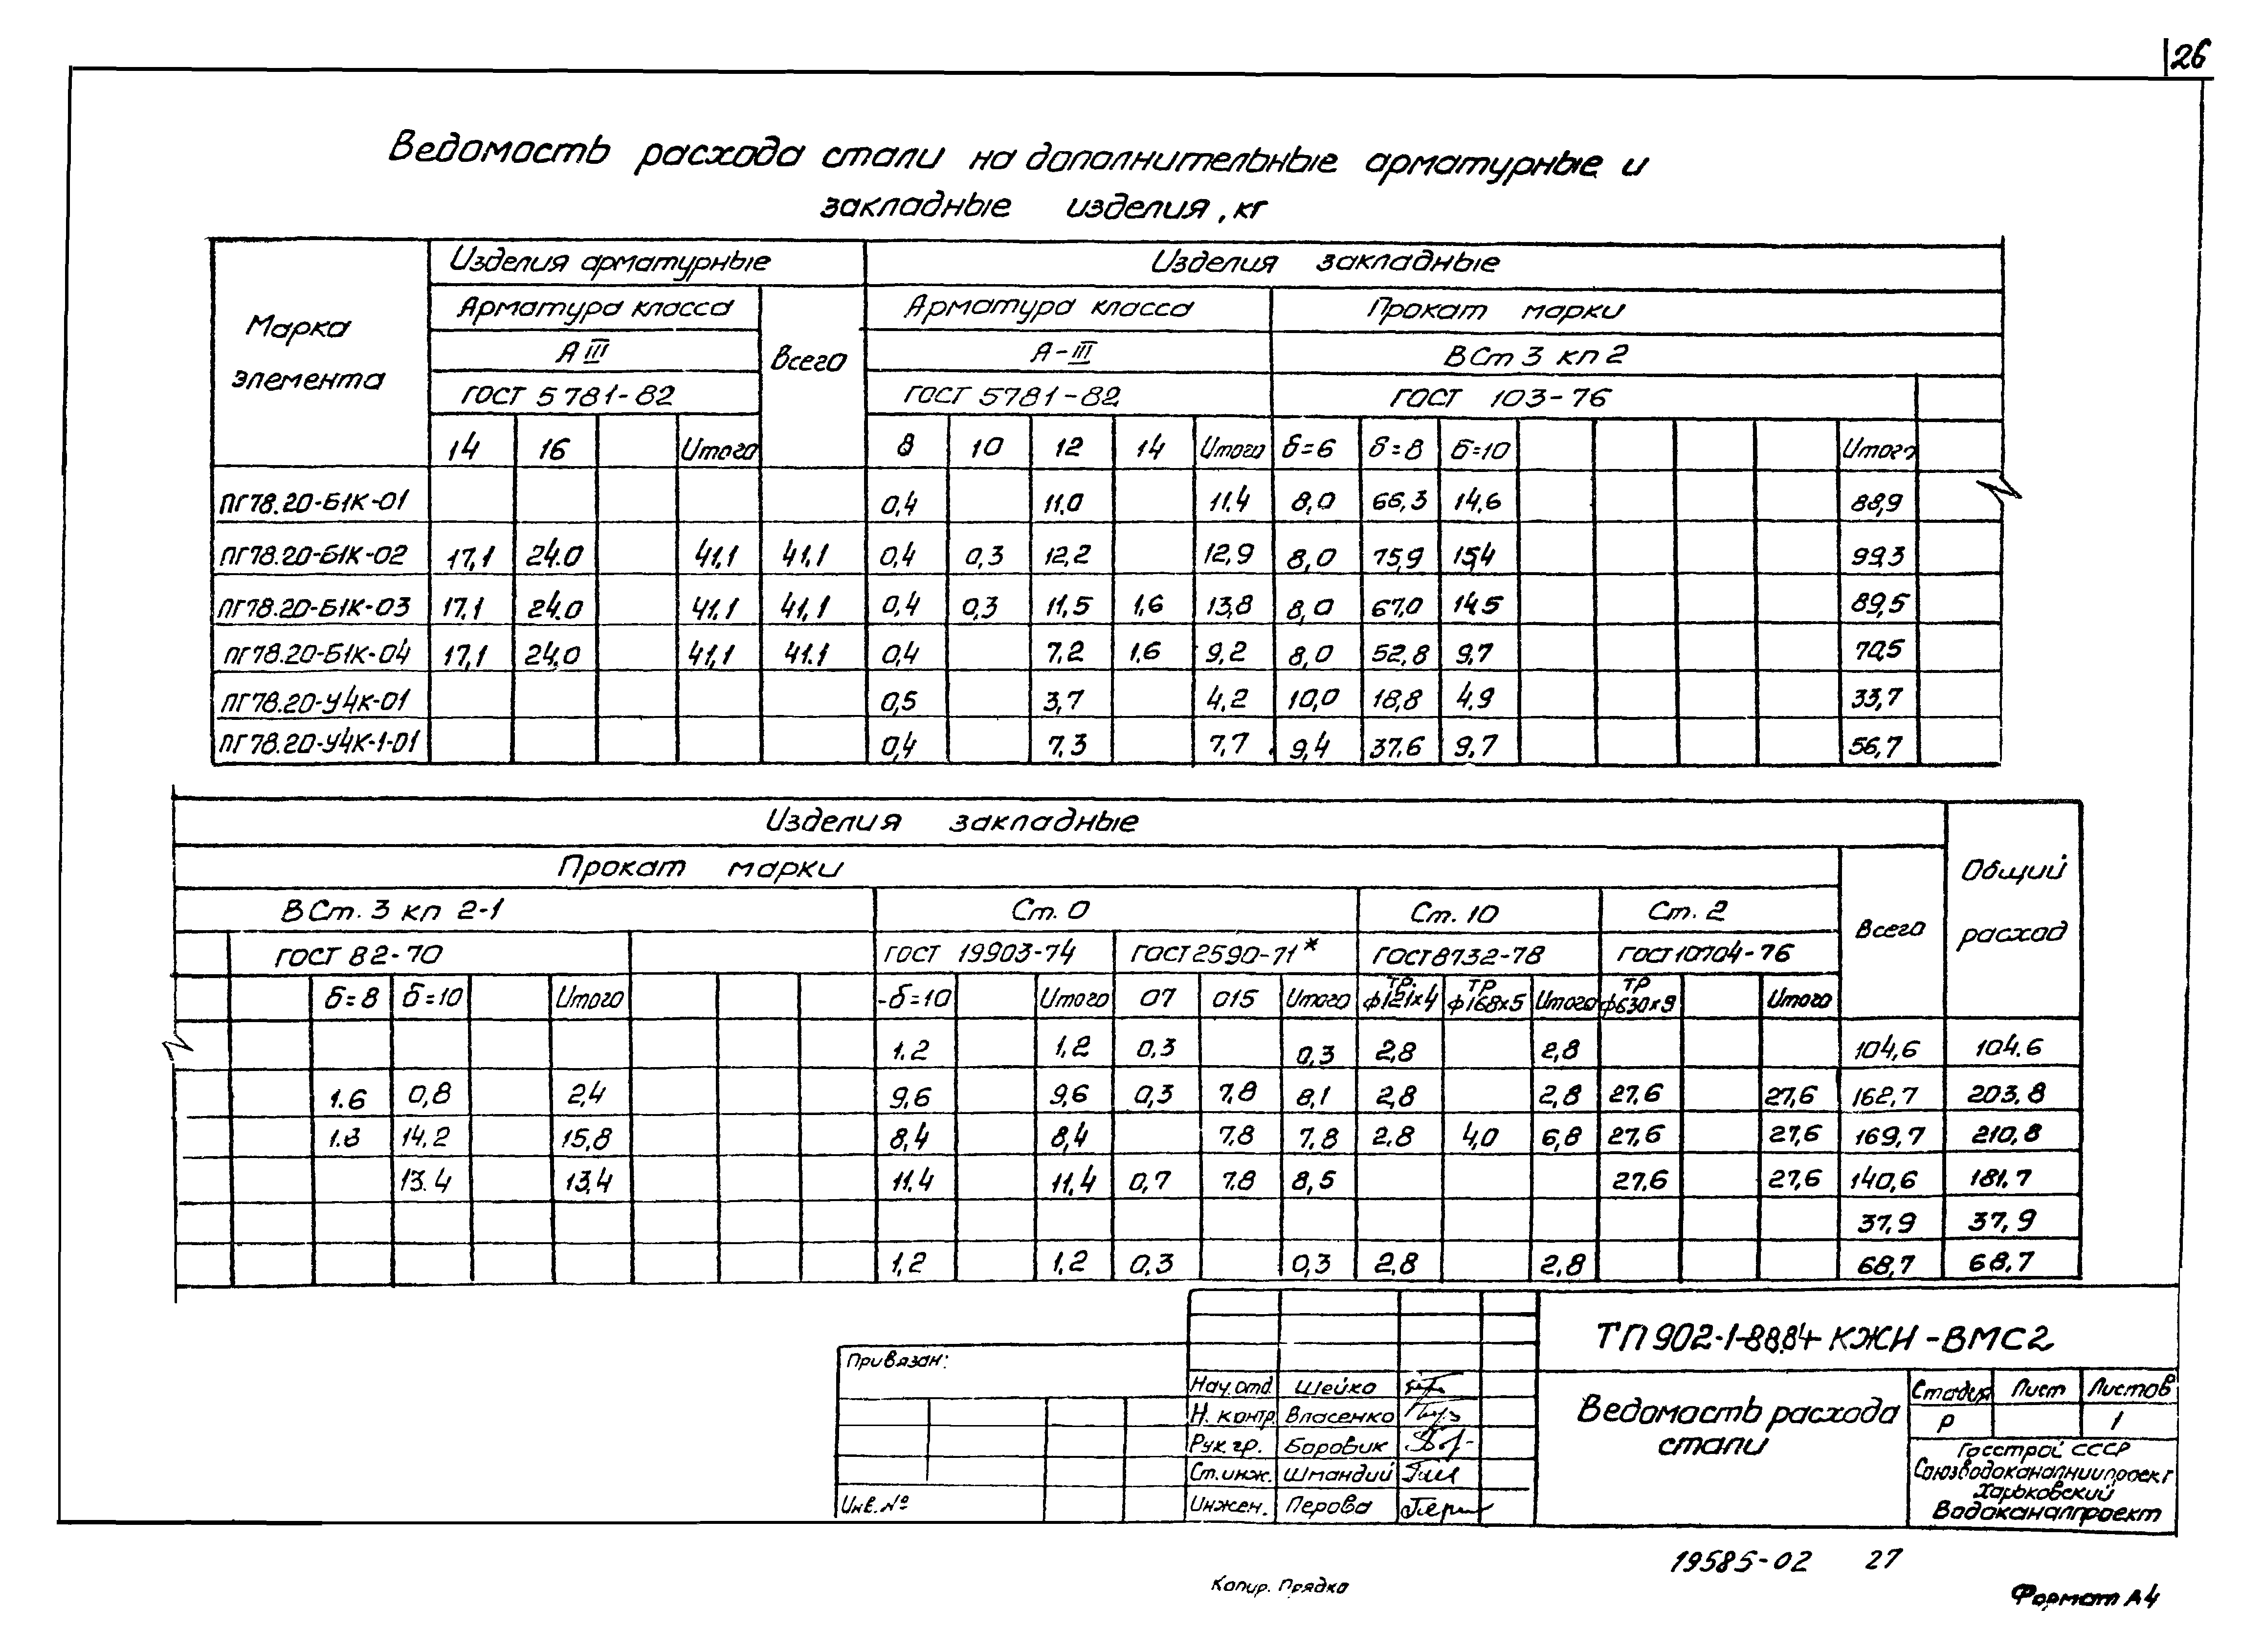 26
Ведомость расхода стали на дополнительные арматурные и
закладные изделия, кг
Марка элемента
Изделия арматурные
Изделия закладные
Арматура класса
Всего
Арматура класса
Прокат марки
А III
А-III
ВСт 3 кп 2
ГОСТ 5781-82
ГОСТ 5781-82
ГОСТ 103-76
14 16 Итого 8 10 12 14 Итого δ=6 δ=8 δ=10 Итого
ПГ78.20-Б1К-01 0,4 11.0 11.4 8,0 66,3 14,6 88,9
ПГ78.20-Б1К-02 17,1 24.0 41,1 41,1 0,4 0,3 12,2 12,9 8,0 75,9 15,4 99,3
ПГ78.20-Б1К-03 17.1 24.0 41.1 41,1 0,4 0,3 11,5 1,6 13,8 8,0 67,0 14,5 89,5
ПГ78.20-Б1К-04 17,1 24,0 41,1 41.1 0,4 7,2 1,6 9,2 8,0 52,8 9,7 70,5
ПГ78.20-У4К-01 0,5 3,7 4,2 10,0 18,8 4,9 33,7
ПГ78.20-У4К-1-01 0,4 7,3 7,7 9,4 37,6 9,7 56,7
Изделия закладные
Общий расход
Прокат марки
Всего
ВСт. 3 кп 2-1
Ст. 0
Ст. 10
Ст. 2
ГОСТ 82-70
ГОСТ 19903-74
ГОСТ 2590-71*
ГОСТ 8732-78
ГОСТ 10704-76
δ=8 δ=10 Итого -δ=10 Итого О7 О15 Итого тр. ф121х4 тр ф168х5 Итого тр ф630х9 Итого
1.2 1,2 0,3 0,3 2,8 2,8 104,6 104.6
1.6 0,8 2,4 9,6 9,6 0,3 7,8 8,1 2,8 2,8 27,6 27,6 162,7 203,8
14,2 15,8 8,4 8,4 7,8 7,8 2,8 4,0 6,8 27,6 27,6 169,7 210,8
13.4 13,4 11,4 11,4 0,7 7,8 8,5 27,6 27,6 140,6 181,7
37,9 37,9
1,2 1,2 0,3 0,3 2,8 2,8 68,7 68,7
ТП 902-1-88.84 КЖН-ВМС2
Привязан:
Инв. №
Нач. отд. Шейко
Н. контр. Власенко
Рук. гр. Боровик
Ст. инж. Шмандий
Инжен. Перова
Ведомость расхода
стали
Стадия Лист Листов
Р 1
Госстрой СССР
Союзводоканалниипроект
Харьковский
Водоканалпроект
19585-02 27
Копир. Прядко
Формат А4